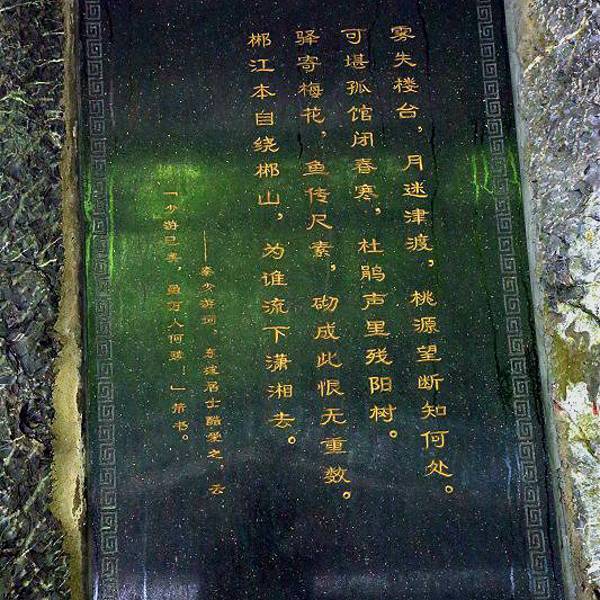 雾失楼台，月迷津渡，桃源望断知何处。
可堪孤馆闭春寒，杜鹃声里残阳树。
驿寄梅花，鱼传尺素，砌成此恨无重数。
郴江本自绕郴山，为谁流下潇湘去。
——秦少游词，东坡居士酷爱之，云
「少游已矣，虽万人何赎…」芾书。